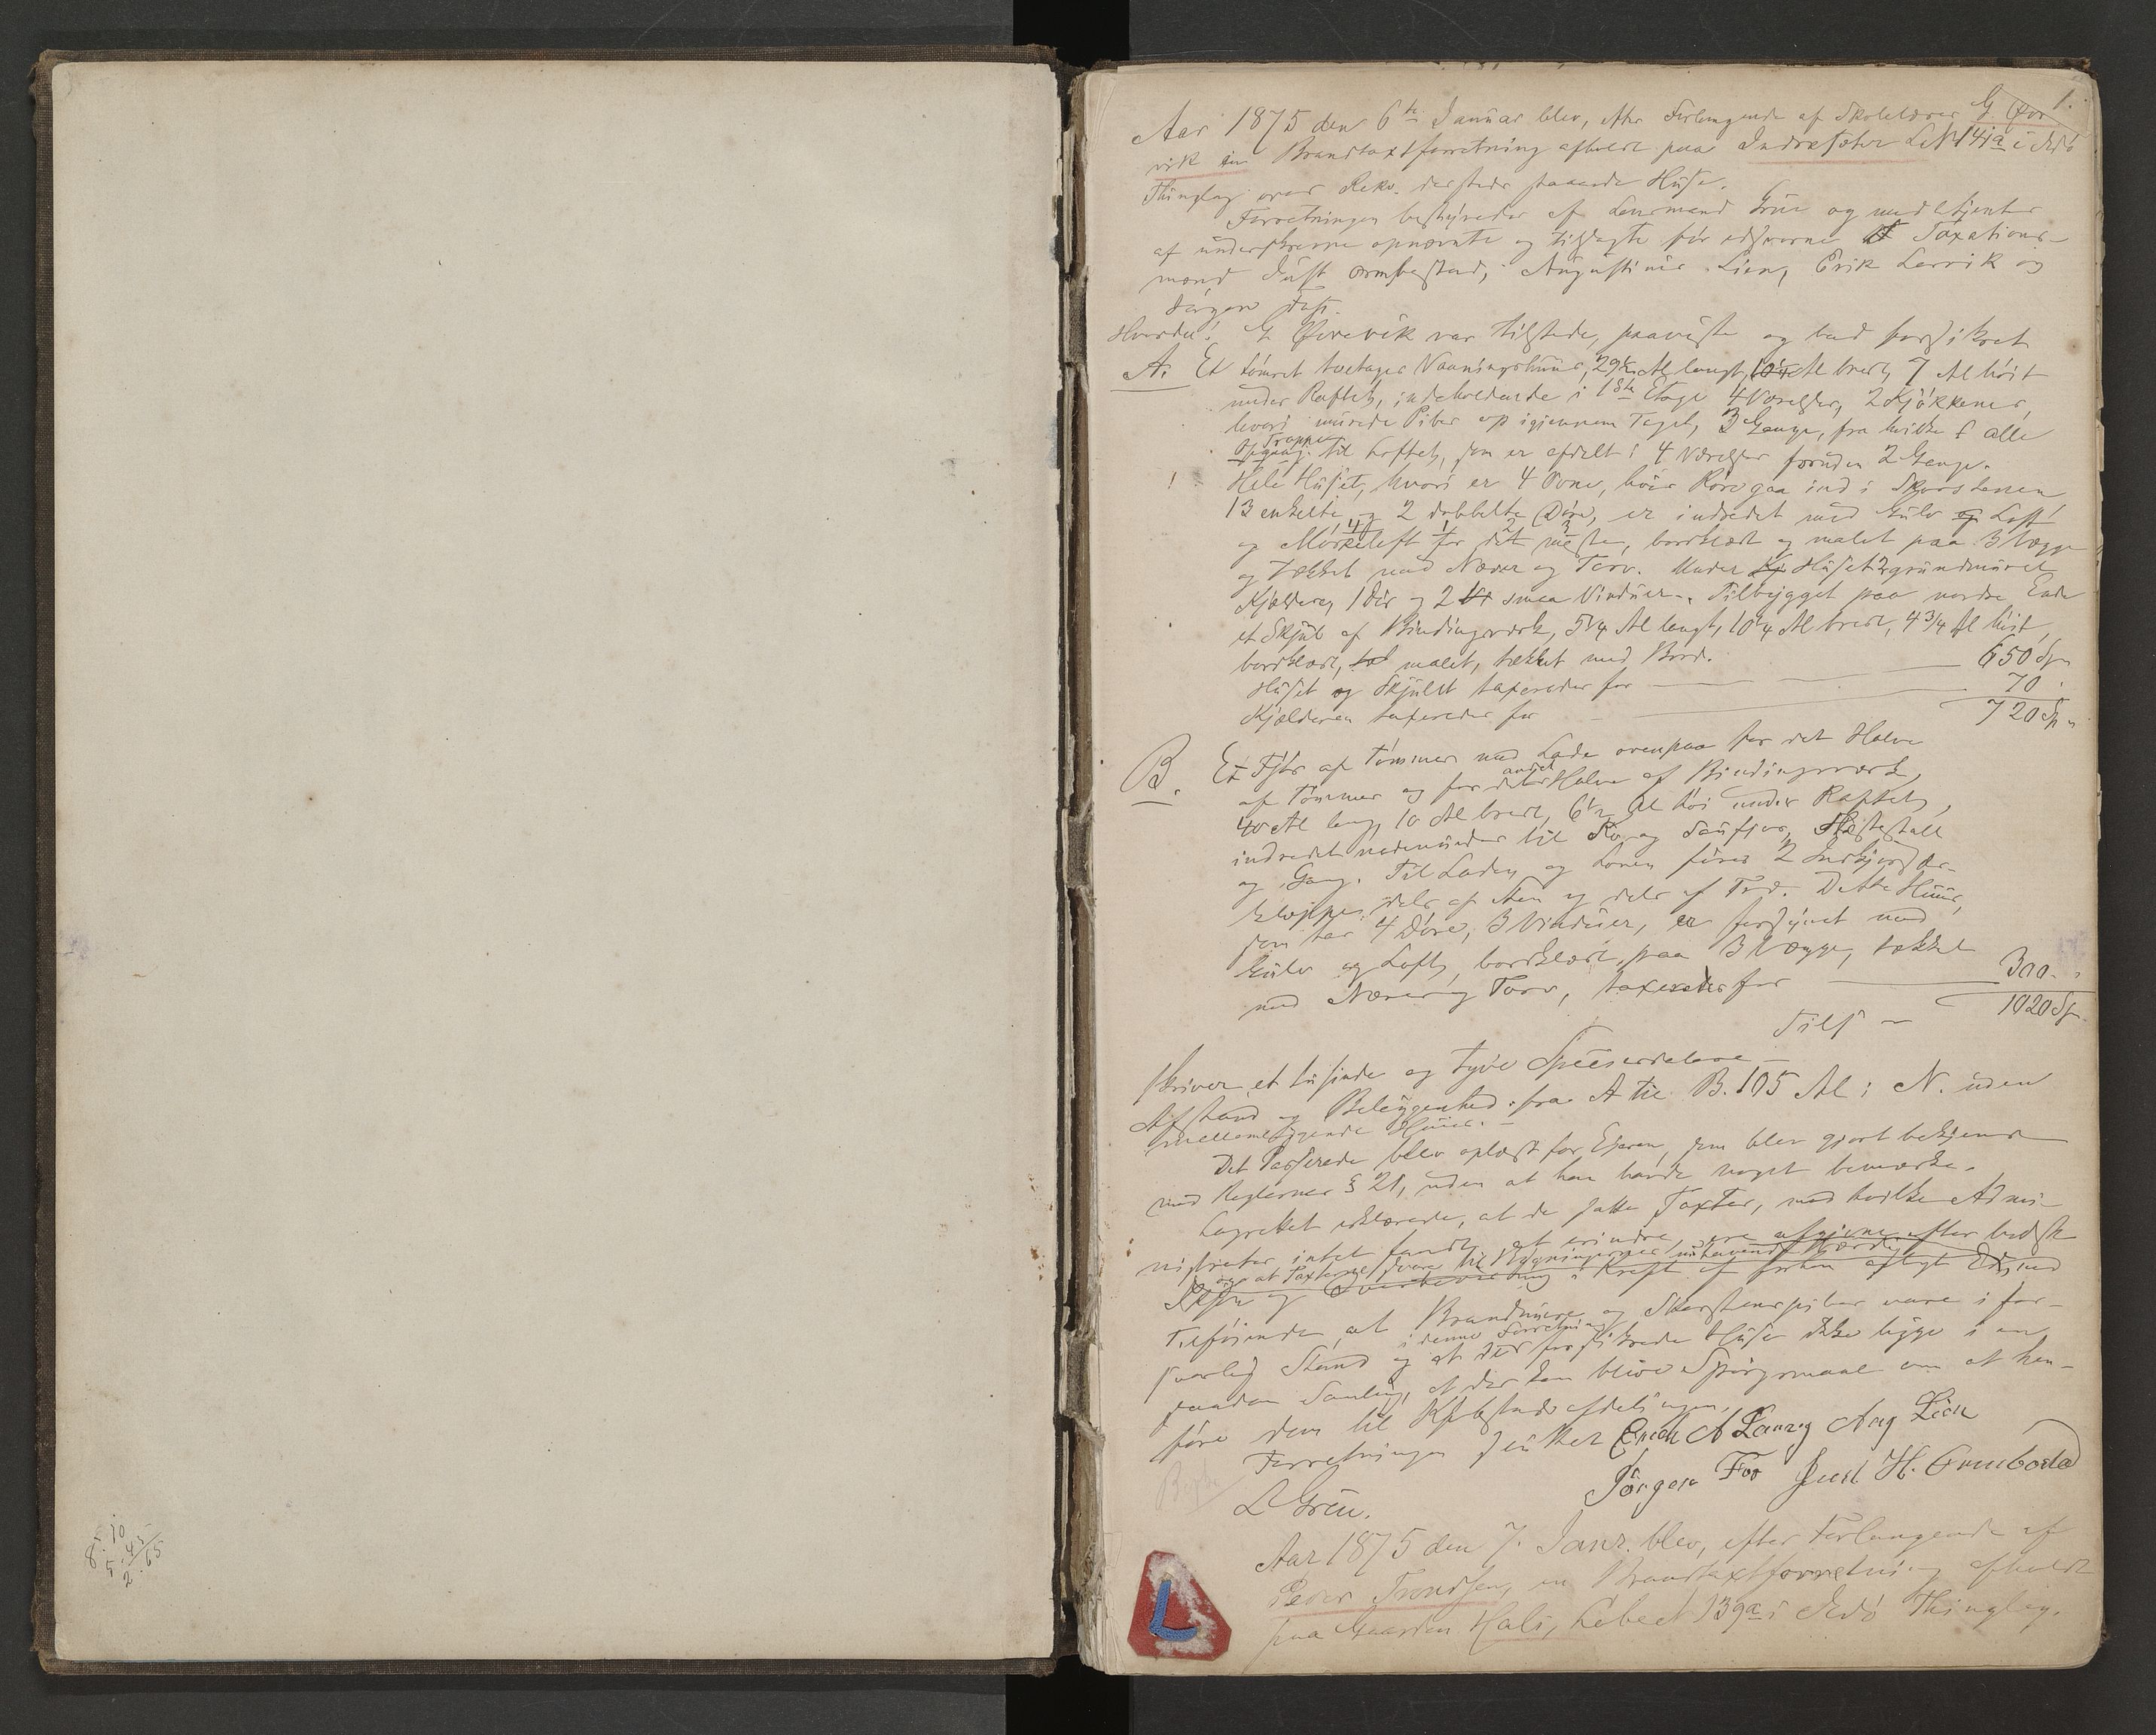 1.
Aar 1875 den 6te Januar blev, efter Forlangende af Skolelærer G. Øre
vik en Brandtaxtforretning afholdt paa Indresæter LNr 141a i Edø
Thinglag over Rekv. dersteds staaende Huse.
Forretningen bestyredes af Lensmand Grün og med tjente
af underskrevne opnævnte og tilsagte før edsvorne Taxations-
mænd Just Ormbostad, Augustinus Lien, Erik Lervik og
Jørgen Foss.
Hvorda! G Ørevik var tilstede, paaviste og bad forsikret
A. Et tømret toetages Vaaningshuus, 29½ Al langt, Al bredt, 7 Al høit
under Raftet, indeholdende i 1ste Etage 4 Værelser, 2 Kjøkkener,
hvori murede Piber op igjennem Taget, 3 Gange, fra hvilke alle
Trapper
Opgang til Loftet, som er afdelt i 4 Værelser foruden 2 Gange.
! Hele Huset, hvori er 4 Ovne, hvis Rør gaa ind i Skorstenen
13 enkelte og 2 dobbelte Døre, er indredet med Gulv og Loft
4 1 2 3
og Mørkeloft for det meste, bordklædt og malet paa 3 Vægge
og tækket med Næver og Torv. Under Huset 2 grundmuret
Kjeldere, 1 Dør og 2 smaa Vinduer. Tilbygget paa nordre Ende
et Skjul af Bindingsværk, 5¼ Al langt, 10¼ Al bredt, 4 3/4 Al høit,
bordklædt, malet, tækket med Bord.
Huset og Skjulet taxeredes for 650 Sp
Kjælderen taxeredes for 70
720 Sp
B. Et Fjøs af Tømmer med Lade ovenpaa for det Halve
andet
af Tømmer og for det Halve af Bindingsværk,
40 Al lang, 10 Al bredt, 6½ Al høi under Raftet,
indredet nedenunder til Ko og Saufjøs, Hestestald
og Gang. Til Laden og Loven fører 2 Indkjørsler-
kløpper dels af Sten og dels af Træ. Dette Huus,
som har 4 Døre, 3 Vinduer, er forsynet med
Gulv og Loft, bordklædt paa 3 Vægge, tækket
med Næver og Torv, taxeredes for 300.
Tils 1020 Sp
skriver et tusinde og tyve Speciesdalere
Afstand og Beliggenhed fra A til B. 105 Al i N. uden
mellemliggende Huse.
Det Passerede blev oplæst for Eieren, som blev gjort bekjendt
med Reglernes § 21, uden at han havde noget bemærke.
Lagrettet erklærede, at de satte Taxter, mod hvilke Admi-
nistrator intet fandt at erindre, ere afgivne efter bedste
og at Taxterne svare til Bygningernes nuhavende Værdi
Skjøn og Overbeviisning i Kraft af forhen aflagt Ed, med
Tilføiende, at Brandmure og Skorstenspiber vare i for-
i denne Forretning
svarlig Stand og at de forsikrede Huse ikke ligge i en
saadan Samling, at der kan blive Spørgsmaal om at hen-
føre dem til Kjøbstadsafdelingen.
Forretningen sluttet Erich A Larvig Aug Lien
Jörgen Fos Just H. Ormbostad
L Grün.
Aar 1875 den 7. Janr. blev, efter Forlangende af
Peder Trondsen, en Brandtaxtforretning afholdt
paa Gaarden Hals, Løbe 139a i Edø Thinglag.
8.10
5.45
2.65
L